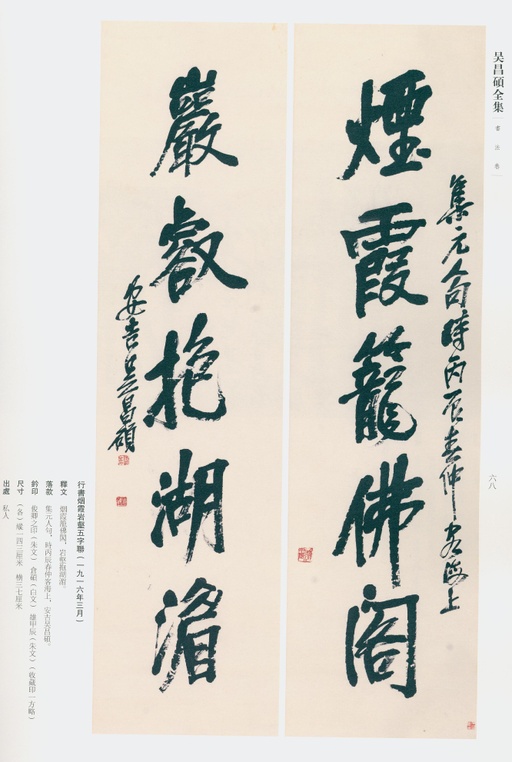 吴昌碩全集
書法卷
六八
煙霞籠佛閣
集元人句時丙辰春仲客海上
巖壑挹湖漘
安吉吳昌碩
行書烟霞岩壑五字聯（一九一六年三月）
釋文
落款 集元人句，時丙辰春仲客海上，安吉吳昌碩。
鈐印 俊卿之印（朱文） 倉碩（白文） 雄甲辰（朱文）（收藏印一方略）
尺寸 （各）縱一四三厘米 橫三七厘米
出處 私人